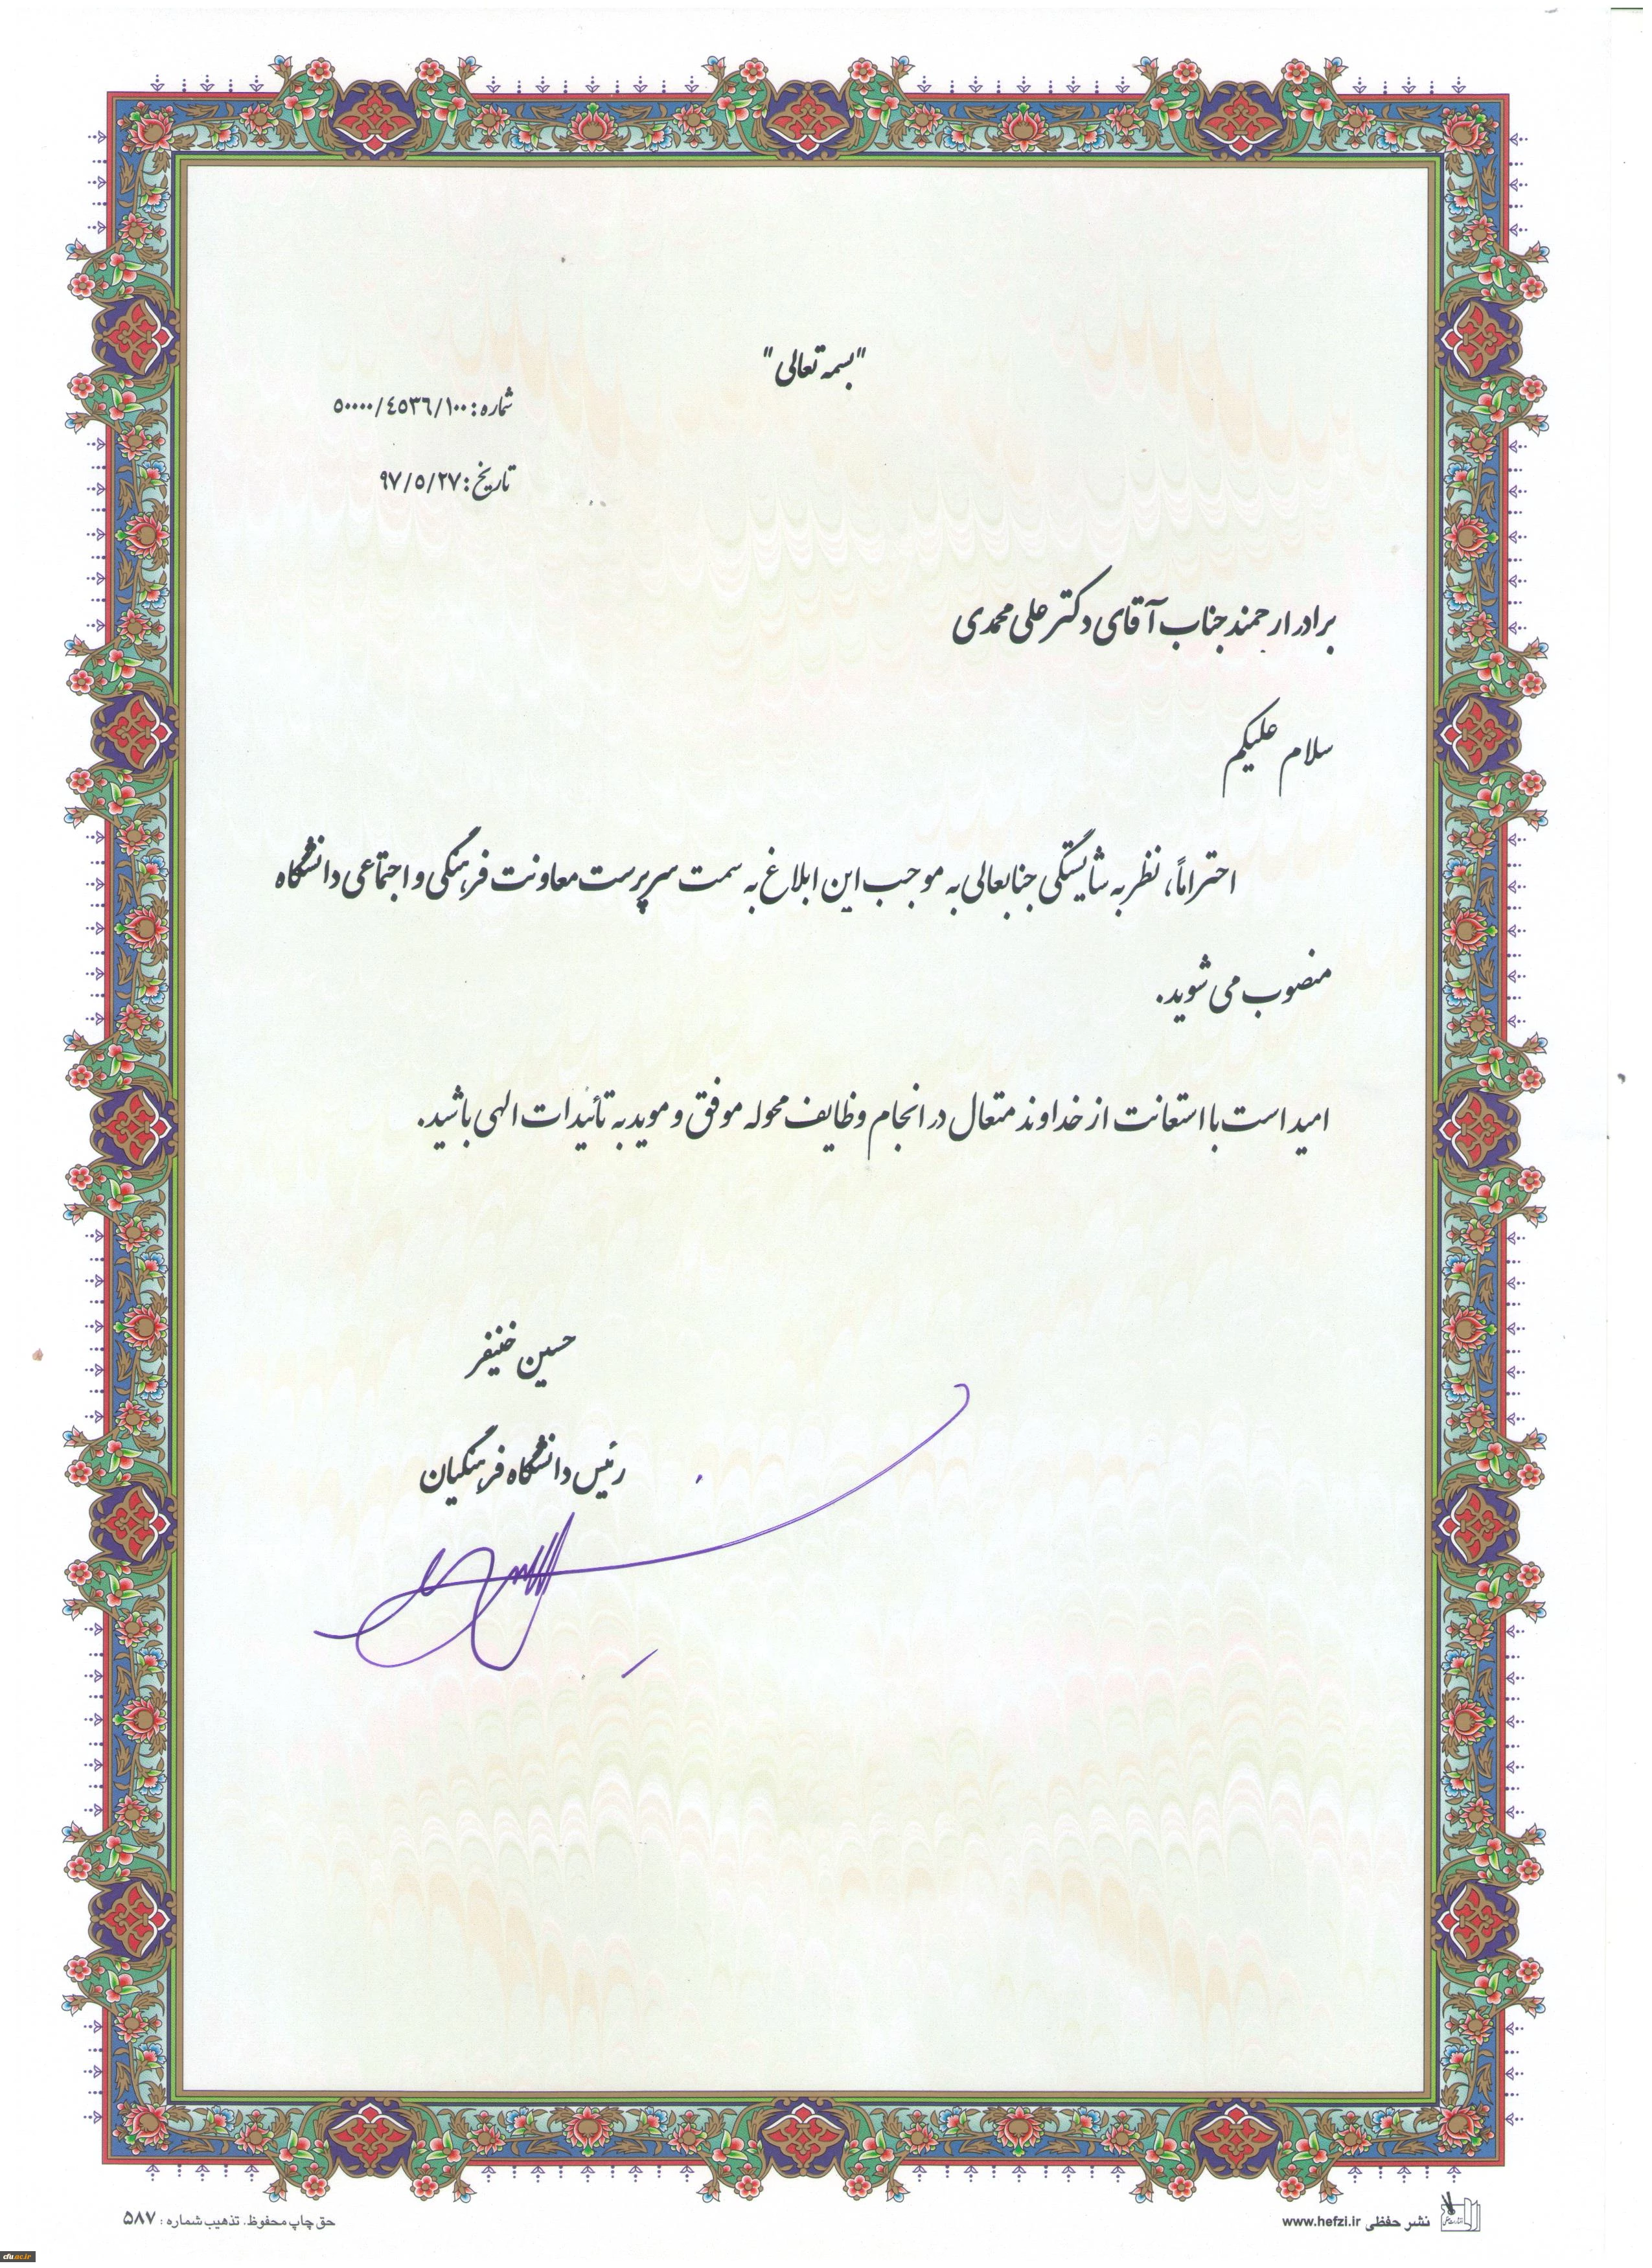 "بسمه تعالی"
شماره: ۵۰۰۰۰/۴۵۳۶/۱۰۰
تاریخ: ۹۷/۵/۲۷
برادر ارجمند جناب آقای دکتر علی محمدی
سلام علیکم
احتراماً، نظر به شایستگی جنابعالی به موجب این ابلاغ به سمت سرپرست معاونت فرهنگی و اجتماعی دانشگاه
منصوب می شوید.
امید است با استعانت از خداوند متعال در انجام وظایف محوله موفق و موید به تائیدات الهی باشید.
حسین خنیفر
رئیس دانشگاه فرهنگیان
نشر حفظی www.hefzi.ir
حق چاپ محفوظ. تذهیب شماره : ۵۸۷
cfu.ac.ir